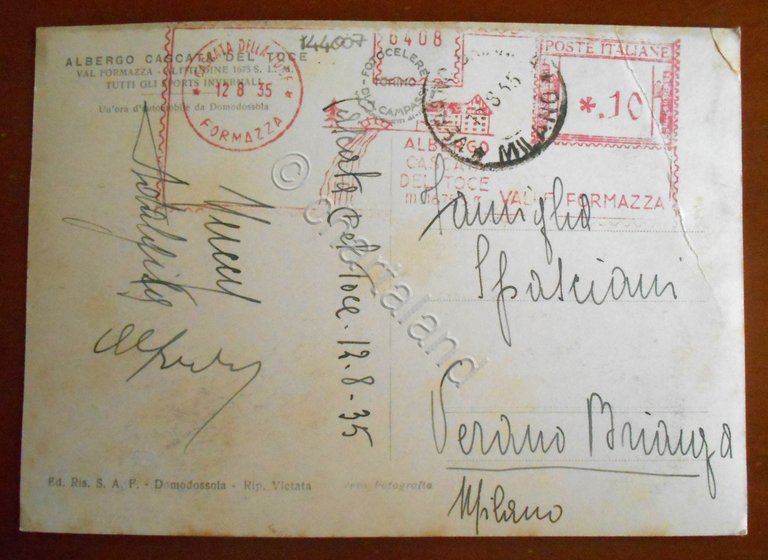 ALBERGO CASCATA DEL TOCE
VAL FORMAZZA - ALTITUDINE 1675 S. L. M.
TUTTI GLI SPORTS INVERNALI
Un'ora d'Automobile da Domodossola
144007
CASCATA DELLA TOCE
12 8 35
FORMAZZA
6408
FOTOCELERE
TORINO
DI A. CAMPASSI
ALBERGO
CASCATA
DEL TOCE
VAL FORMAZZA
MILANO
POSTE ITALIANE
*.10
Cascata del Toce. 12-8-35
Alfredo
Famiglia
Spasciani
Verano Brianza
Milano
Ed. Ris. S. A. F. - Domodossola - Rip. Vietata
Vera Fotografia
© cartaland